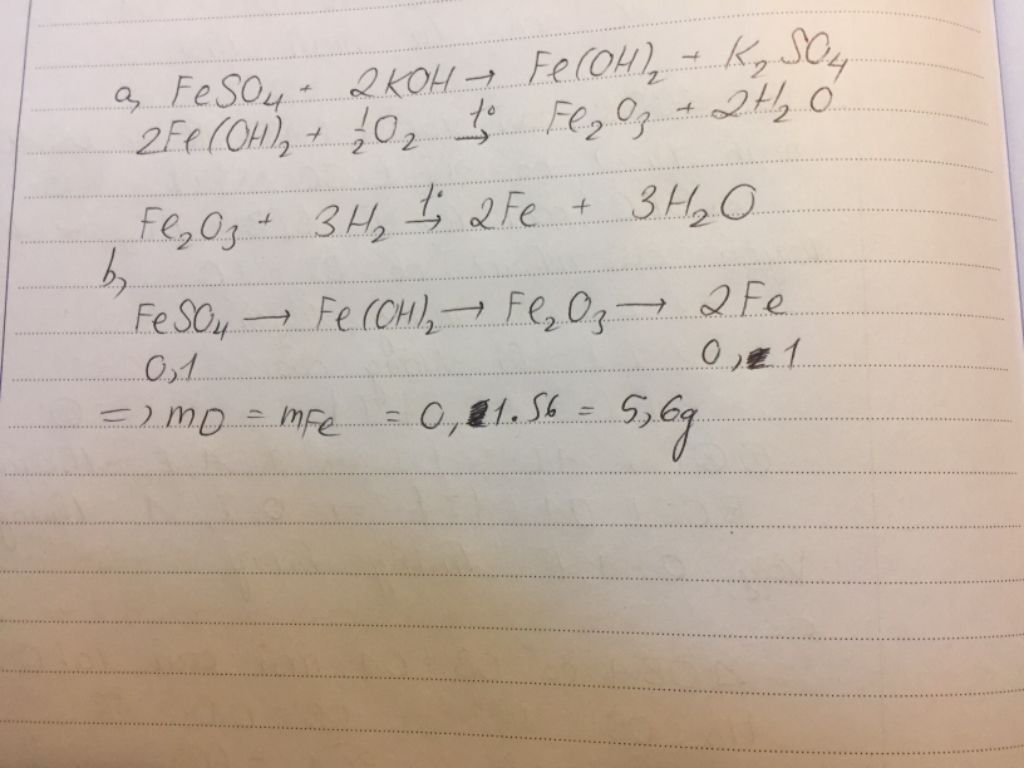 a, FeSO₄ + 2KOH → Fe(OH)₂ + K₂SO₄
2Fe(OH)₂ + ½O₂ t° → Fe₂O₃ + 2H₂O
Fe₂O₃ + 3H₂ t° → 2Fe + 3H₂O
b,
FeSO₄ → Fe(OH)₂ → Fe₂O₃ → 2Fe
0,1 0,1
=) mD = mFe = 0,1.56 = 5,6g